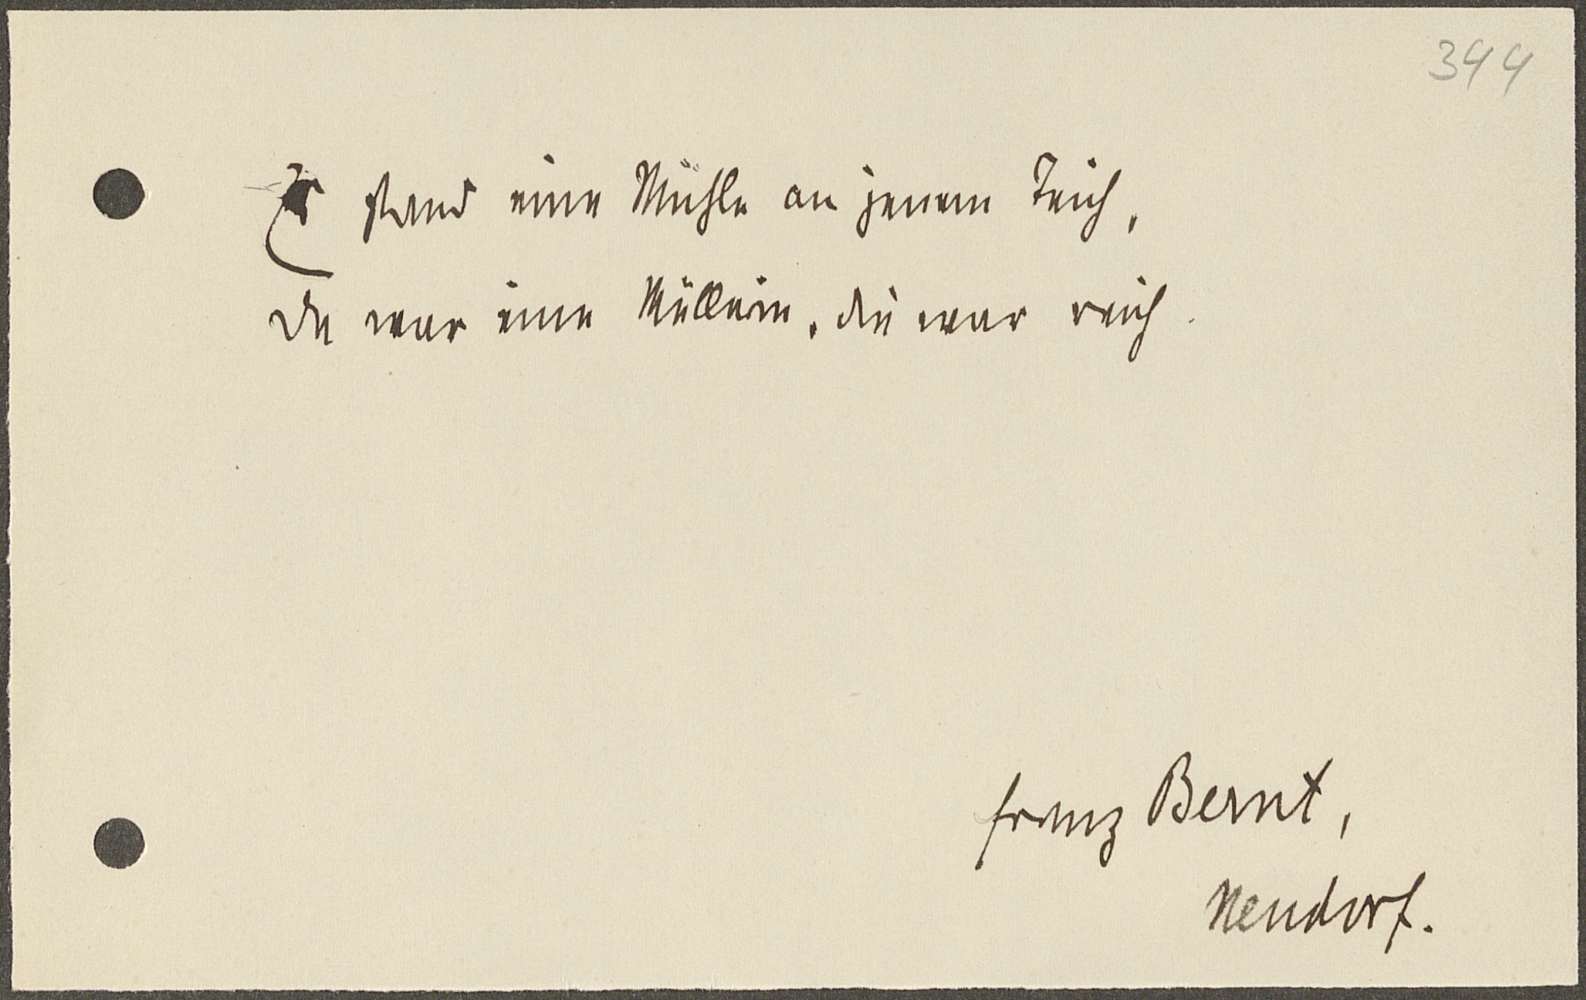 344
Es stand eine Mühle an jenem Teich,
da war eine Müllerin, die war reich.
Franz Bernt,
Neudorf.